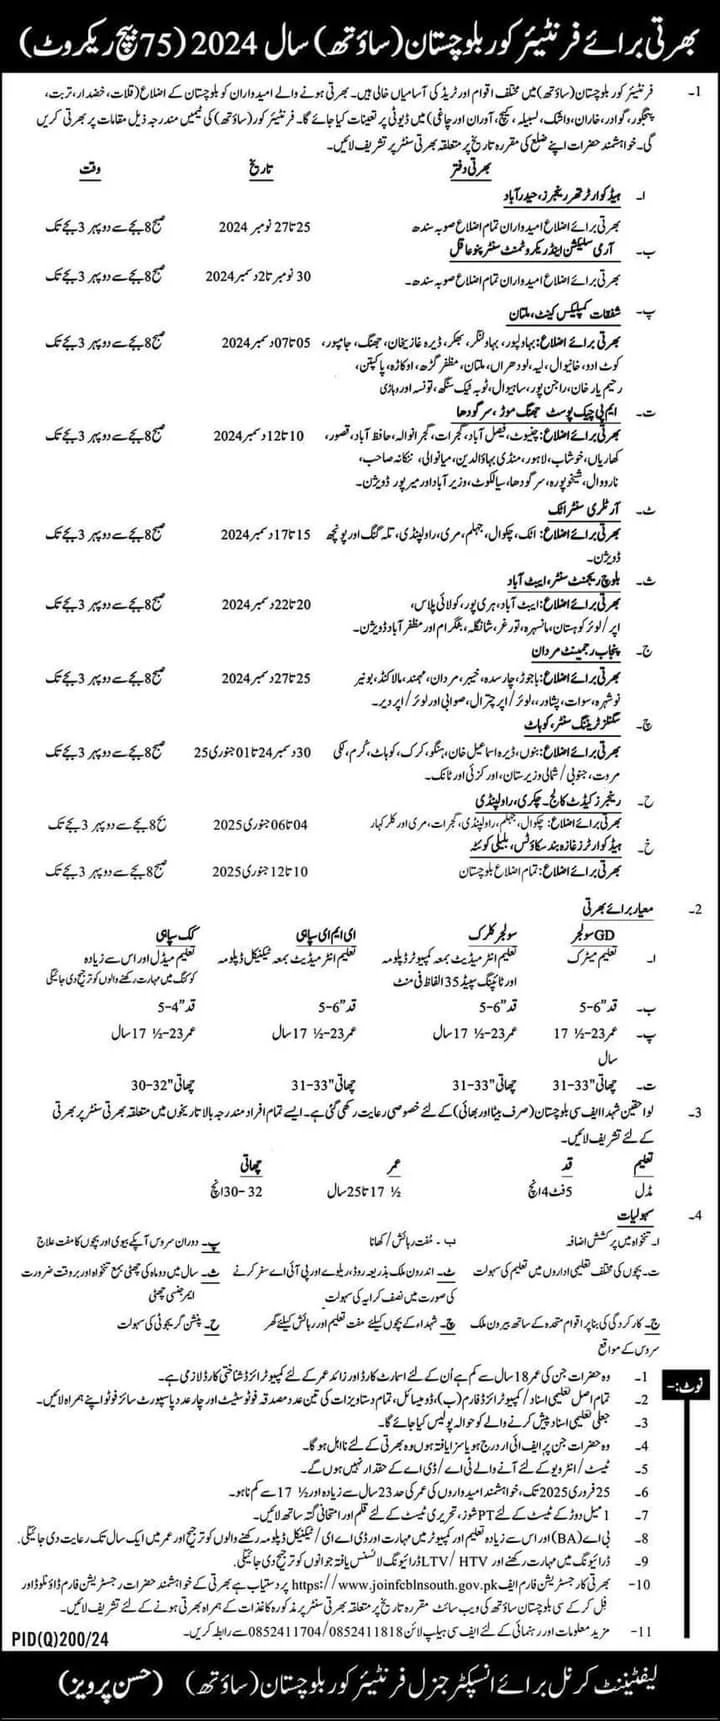 بھرتی برائے فرنٹیئر کور بلوچستان (ساؤتھ) سال 2024 (75 بیچ ریکروٹ)
1۔ فرنٹیئر کور بلوچستان (ساؤتھ) میں مختلف اقوام اور ٹریڈ کی آسامیاں خالی ہیں۔ بھرتی ہونے والے امیدواران کو بلوچستان کے اضلاع (قلات، خضدار، تربت،
پنجگور، گوادر، خاران، واشک، لسبیلہ، کیچ، آوران اور چاغی) میں ڈیوٹی پر تعینات کیا جائے گا۔ فرنٹیئر کور (ساؤتھ) کی ٹیمیں مندرجہ ذیل مقامات پر بھرتی کریں
گی۔ خواہشمند حضرات اپنے ضلع کی مقررہ تاریخ پر متعلقہ بھرتی سنٹر پر تشریف لائیں۔
بھرتی دفتر تاریخ وقت
ا۔ ہیڈ کوارٹر تھر رینجرز، حیدرآباد
بھرتی برائے اضلاع امیدواران تمام اضلاع صوبہ سندھ 25 تا 27 نومبر 2024 صبح 8 بجے سے دوپہر 3 بجے تک
ب۔ آرمی سلیکشن اینڈ ریکروٹمنٹ سنٹر پنوعاقل
بھرتی برائے اضلاع امیدواران تمام اضلاع صوبہ سندھ۔ 30 نومبر تا 2 دسمبر 2024 صبح 8 بجے سے دوپہر 3 بجے تک
پ۔ شفقات کمپلیکس کینٹ، ملتان
بھرتی برائے اضلاع: بہاولپور، بہاولنگر، بھکر، ڈیرہ غازیخان، جھنگ، جامپور، 05 تا 07 دسمبر 2024 صبح 8 بجے سے دوپہر 3 بجے تک
کوٹ ادو، خانیوال، لیہ، لودھراں، ملتان، مظفر گڑھ، اوکاڑہ، پاکپتن،
رحیم یار خان، راجن پور، ساہیوال، ٹوبہ ٹیک سنگھ، تونسہ اور وہاڑی
ت۔ ایم پی چیک پوسٹ جھنگ موڑ، سرگودھا
بھرتی برائے اضلاع: چنیوٹ، فیصل آباد، گجرات، گجرانوالہ، حافظ آباد، قصور، 10 تا 12 دسمبر 2024 صبح 8 بجے سے دوپہر 3 بجے تک
کھاریاں، خوشاب، لاہور، منڈی بہاؤالدین، میانوالی، ننکانہ صاحب،
نارووال، شیخوپورہ، سرگودھا، سیالکوٹ، وزیر آباد اور میر پور ڈویژن۔
ٹ۔ آرٹلری سنٹر اٹک
بھرتی برائے اضلاع: اٹک، چکوال، جہلم، مری، راولپنڈی، تلہ گنگ اور پونچھ 15 تا 17 دسمبر 2024 صبح 8 بجے سے دوپہر 3 بجے تک
ڈویژن۔
ث۔ بلوچ ریجمنٹ سنٹر، ایبٹ آباد
بھرتی برائے اضلاع: ایبٹ آباد، ہری پور، کولائی پلاس، 20 تا 22 دسمبر 2024 صبح 8 بجے سے دوپہر 3 بجے تک
اپر/لوئر کوہستان، مانسہرہ، تورغر، شانگلہ، بٹگرام اور مظفر آباد ڈویژن۔
ج۔ پنجاب رجمنٹ مردان
بھرتی برائے اضلاع: باجوڑ، چارسدہ، خیبر، مردان، مہمند، مالاکنڈ، بونیر 25 تا 27 دسمبر 2024 صبح 8 بجے سے دوپہر 3 بجے تک
نوشہرہ، سوات، پشاور،، لوئر/اپر چترال، صوابی اور لوئر/اپر دیر۔
چ۔ سگنلز ٹریننگ سنٹر، کوہاٹ
بھرتی برائے اضلاع: بنوں، ڈیرہ اسماعیل خان، ہنگو، کرک، کوہاٹ، کرم، لکی 30 دسمبر 24 تا 01 جنوری 25 صبح 8 بجے سے دوپہر 3 بجے تک
مروت، جنوبی/شمالی وزیرستان، اورکزئی اور ٹانک۔
ح۔ رینجرز کیڈٹ کالج۔ چکری، راولپنڈی
بھرتی برائے اضلاع: چکوال، جہلم، راولپنڈی، گجرات، مری اور کلر کہار 04 تا 06 جنوری 2025 صبح 8 بجے سے دوپہر 3 بجے تک
خ۔ ہیڈ کوارٹرز غازہ بند سکاؤٹس، بلیلی کوئٹہ
بھرتی برائے اضلاع: تمام اضلاع بلوچستان 10 تا 12 جنوری 2025 صبح 8 بجے سے دوپہر 3 بجے تک
2۔ معیار برائے بھرتی
GD سولجر سولجر کلرک ای ایم ای سپاہی کک سپاہی
ا۔ تعلیم میٹرک تعلیم انٹرمیڈیٹ بمعہ کمپیوٹر ڈپلومہ تعلیم انٹرمیڈیٹ بمعہ ٹیکنیکل ڈپلومہ تعلیم میڈل اور اس سے زیادہ
اور ٹائپنگ سپیڈ 35 الفاظ فی منٹ کوکنگ میں مہارت رکھنے والوں کو ترجیح دی جائیگی
ب۔ قد "6-5 قد "6-5 قد "6-5 قد "4-5
پ۔ عمر 23-½ 17 عمر 23-½ 17 سال عمر 23-½ 17 سال عمر 23-½ 17 سال
سال
ت۔ چھاتی "33-31 چھاتی "33-31 چھاتی "33-31 چھاتی "32-30
3۔ لواحقین شہدا ایف سی بلوچستان (صرف بیٹا اور بھائی) کے لئے خصوصی رعایت رکھی گئی ہے۔ ایسے تمام افراد مندرجہ بالا تاریخوں میں متعلقہ بھرتی سنٹر پر بھرتی
کے لئے تشریف لائیں۔
تعلیم قد عمر چھاتی
مڈل 5 فٹ 4 انچ ½ 17 تا 25 سال 32-30 انچ
4۔ سہولیات
ا۔ تنخواہ میں پرکشش اضافہ ب۔ مفت رہائش/کھانا پ۔ دوران سروس آپکے بیوی اور بچوں کا مفت علاج
ت۔ بچوں کی مختلف تعلیمی اداروں میں تعلیم کی سہولت ٹ۔ اندرون ملک بذریعہ روڈ، ریلوے اور پی آئی اے سفر کرنے ث۔ سال میں دو ماہ کی چھٹی بمع تنخواہ اور بروقت ضرورت
کی صورت میں نصف کرایہ کی سہولت ایمرجنسی چھٹی
ج۔ کارکردگی کی بنا پر اقوام متحدہ کے ساتھ بیرون ملک چ۔ شہداء کے بچوں کیلئے مفت تعلیم اور رہائش کیلئے گھر ح۔ پنشن گریجوٹی کی سہولت
سروس کے مواقع
نوٹ:۔
1۔ وہ حضرات جن کی عمر 18 سال سے کم ہے اُن کے لئے اسمارٹ کارڈ اور زائد عمر کے لئے کمپیوٹرائزڈ شناختی کارڈ لازمی ہے۔
2۔ تمام اصل تعلیمی اسناد/کمپیوٹرائزڈ فارم (ب)، ڈومیسائل، تمام دستاویزات کی تین عدد مصدقہ فوٹو سٹیٹ اور چار عدد پاسپورٹ سائز فوٹو اپنے ہمراہ لائیں۔
3۔ جعلی تعلیمی اسناد پیش کرنے والے کو حوالہ پولیس کیا جائے گا۔
4۔ وہ حضرات جن پر ایف آئی آر درج ہو یا سزا یافتہ ہوں وہ بھرتی کے لئے نااہل ہو گا۔
5۔ ٹیسٹ/انٹرویو کے لئے آنے والے ٹی اے/ڈی اے کے حقدار نہیں ہوں گے۔
6۔ 25 فروری 2025 تک، خواہشمند امیدواروں کی عمر کی حد 23 سال سے زیادہ اور ½ 17 سے کم نا ہو۔
7۔ 1 میل دوڑ کے ٹیسٹ کے لئے PT شوز، تحریری ٹیسٹ کے لئے قلم اور امتحانی گتہ ساتھ لائیں۔
8۔ بی اے (BA) اور اس سے زیادہ تعلیم اور کمپیوٹر میں مہارت اور ڈی اے ای/ٹیکنیکل ڈپلومہ رکھنے والوں کو ترجیح اور عمر میں ایک سال تک رعایت دی جائیگی۔
9۔ ڈرائیونگ میں مہارت رکھنے اور LTV/HTV ڈرائیونگ لائسنس یافتہ جوانوں کو ترجیح دی جائیگی۔
10۔ بھرتی کا رجسٹریشن فارم ایف https://www.joinfcblnsouth.gov.pk پر دستیاب ہے بھرتی کے خواہشمند حضرات رجسٹریشن فارم ڈاؤنلوڈ اور
فل کر کے سی بلوچستان ساؤتھ کی ویب سائٹ مقررہ تاریخ پر متعلقہ بھرتی سنٹر پر مذکورہ کاغذات کے ہمراہ بھرتی ہونے کے لئے تشریف لائیں۔
11۔ مزید معلومات اور رہنمائی کے لئے ایف سی ہیلپ لائن 0852411704/0852411818 سے رابطہ کریں۔
PID(Q)200/24
لیفٹیننٹ کرنل برائے انسپکٹر جنرل فرنٹیئر کور بلوچستان (ساؤتھ) (حسن پرویز)